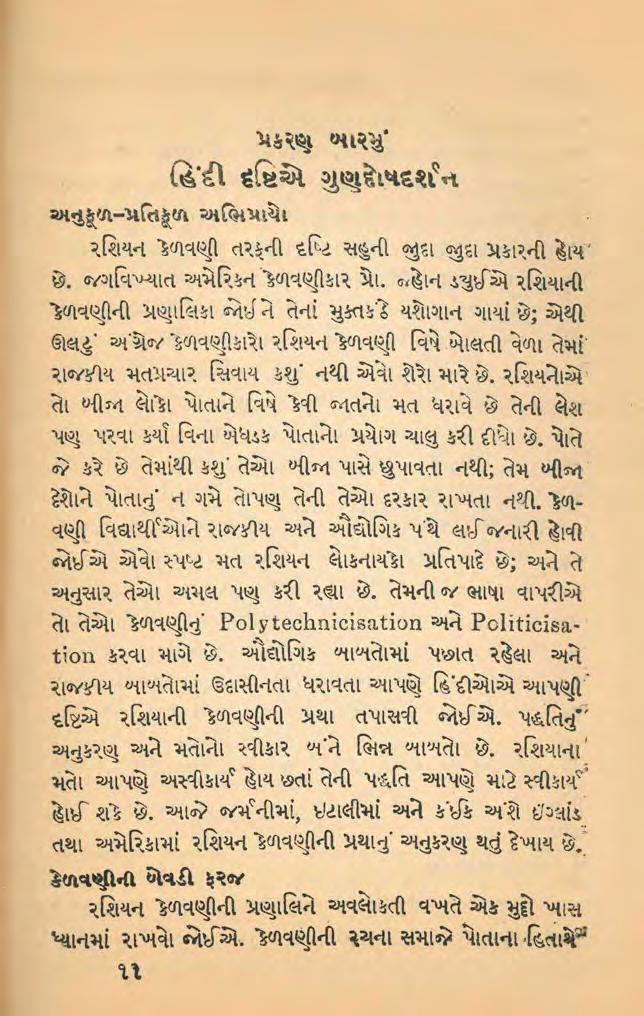 પ્રકરણ બારમું
હિંદી દૃષ્ટિએ ગુણદોષદર્શન
અનુકૂળ-પ્રતિકૂળ અભિપ્રાયો
રશિયન કેળવણી તરફની દૃષ્ટિ સહુની જુદા જુદા પ્રકારની હોય
છે. જગવિખ્યાત અમેરિકન કેળવણીકાર પ્રો. જ્હોન ડ્યુઈએ રશિયાની
કેળવણીની પ્રણાલિકા જોઈને તેનાં મુક્તકંઠે યશોગાન ગાયાં છે; એથી
ઊલટું અંગ્રેજ કેળવણીકારો રશિયન કેળવણી વિષે બોલતી વેળા તેમાં
રાજકીય મતપ્રચાર સિવાય કશું નથી એવો શેરો મારે છે. રશિયનોએ
તો બીજા લોકો પોતાને વિષે કેવી જાતનો મત ધરાવે છે તેની લેશ
પણ પરવા કર્યા વિના બેધડક પોતાનો પ્રયોગ ચાલુ કરી દીધો છે. પોતે
જે કરે છે તેમાંથી કશું તેઓ બીજા પાસે છુપાવતા નથી; તેમ બીજા
દેશોને પોતાનું ન ગમે તોપણ તેની તેઓ દરકાર રાખતા નથી. કેળ-
વણી વિદ્યાર્થીઓને રાજકીય અને ઔદ્યોગિક પંથે લઈ જનારી હોવી
જોઈએ એવો સ્પષ્ટ મત રશિયન લોકનાયકો પ્રતિપાદે છે; અને તે
અનુસાર તેઓ અમલ પણ કરી રહ્યા છે. તેમની જ ભાષા વાપરીએ
તો તેઓ કેળવણીનું Polytechnicisation અને Politicisa-
tion કરવા માગે છે. ઔદ્યોગિક બાબતોમાં પછાત રહેલા અને
રાજકીય બાબતોમાં ઉદાસીનતા ધરાવતા આપણે હિંદીઓએ આપણી
દૃષ્ટિએ રશિયાની કેળવણીની પ્રથા તપાસવી જોઈએ. પદ્ધતિનું
અનુકરણ અને મતોનો સ્વીકાર બંને ભિન્ન બાબતો છે. રશિયાના
મતો આપણે અસ્વીકાર્ય હોય છતાં તેની પદ્ધતિ આપણે માટે સ્વીકાર્ય
હોઈ શકે છે. આજે જર્મનીમાં, ઇટાલીમાં અને કંઈક અંશે ઇંગ્લાંડ
તથા અમેરિકામાં રશિયન કેળવણીની પ્રથાનું અનુકરણ થતું દેખાય છે.
કેળવણીની બેવડી ફરજ
રશિયન કેળવણીની પ્રણાલિને અવલોકતી વખતે એક મુદ્દો ખાસ
ધ્યાનમાં રાખવો જોઈએ. કેળવણીની રચના સમાજે પોતાના હિતાર્થે
૧૧